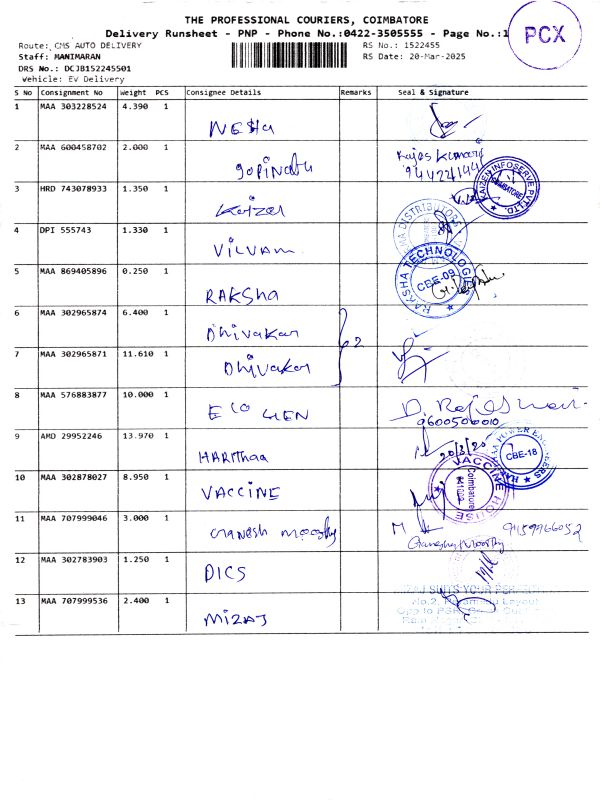 THE PROFESSIONAL COURIERS, COIMBATORE
Delivery Runsheet - PNP - Phone No.:0422-3505555 - Page No.:1
PCX
Route: CMS AUTO DELIVERY RS No.: 1522455
Staff: MANIMARAN RS Date: 20-Mar-2025
DRS No.: DCJB152245501
Vehicle: EV Delivery
S No Consignment No Weight PCS Consignee Details Remarks Seal & Signature
1 MAA 303228524 4.390 1 NESHA
2 MAA 600458702 2.000 1 gopinath Rajes Kumar
KAIZEN INFOSERVE PVT LTD. COIMBATORE
3 HRD 743078933 1.350 1 Kaizen
4 DPI 555743 1.330 1 VILVAM DISTRIBUTORS
5 MAA 869405896 0.250 1 RAKSHA RAKSHA TECHNOLOGIES CBE-09
6 MAA 302965874 6.400 1 Dhivakar 2
7 MAA 302965871 11.610 1 Dhivakar
8 MAA 576883877 10.000 1 ECO GEN D. Rajeshwari
9600506010
9 AMD 29952246 13.970 1 HARITHAA 20/3/20 POWER CBE-18
10 MAA 302878027 8.950 1 VACCINE VACCINE HOUSE Coimbatore
11 MAA 707999046 3.000 1 Ganesh Moorthy M 9159966052
Ganesh Moorthy
12 MAA 302783903 1.250 1 DICS
13 MAA 707999536 2.400 1 MIZAJ SUITS YOUR